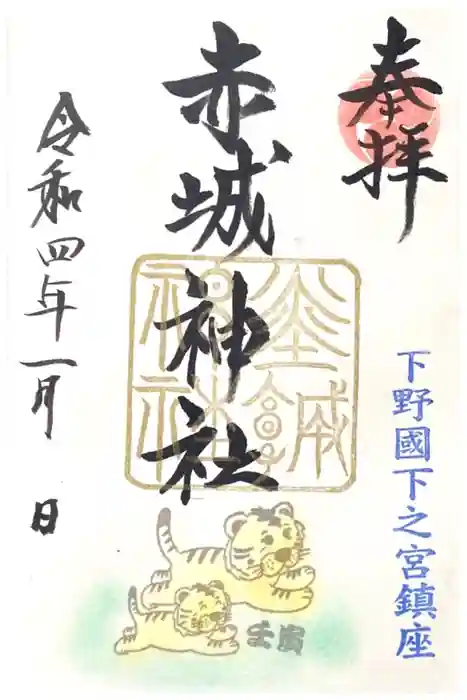 奉拝
下野國下之宮鎮座
赤城神社
壬寅
令和四年一月 日